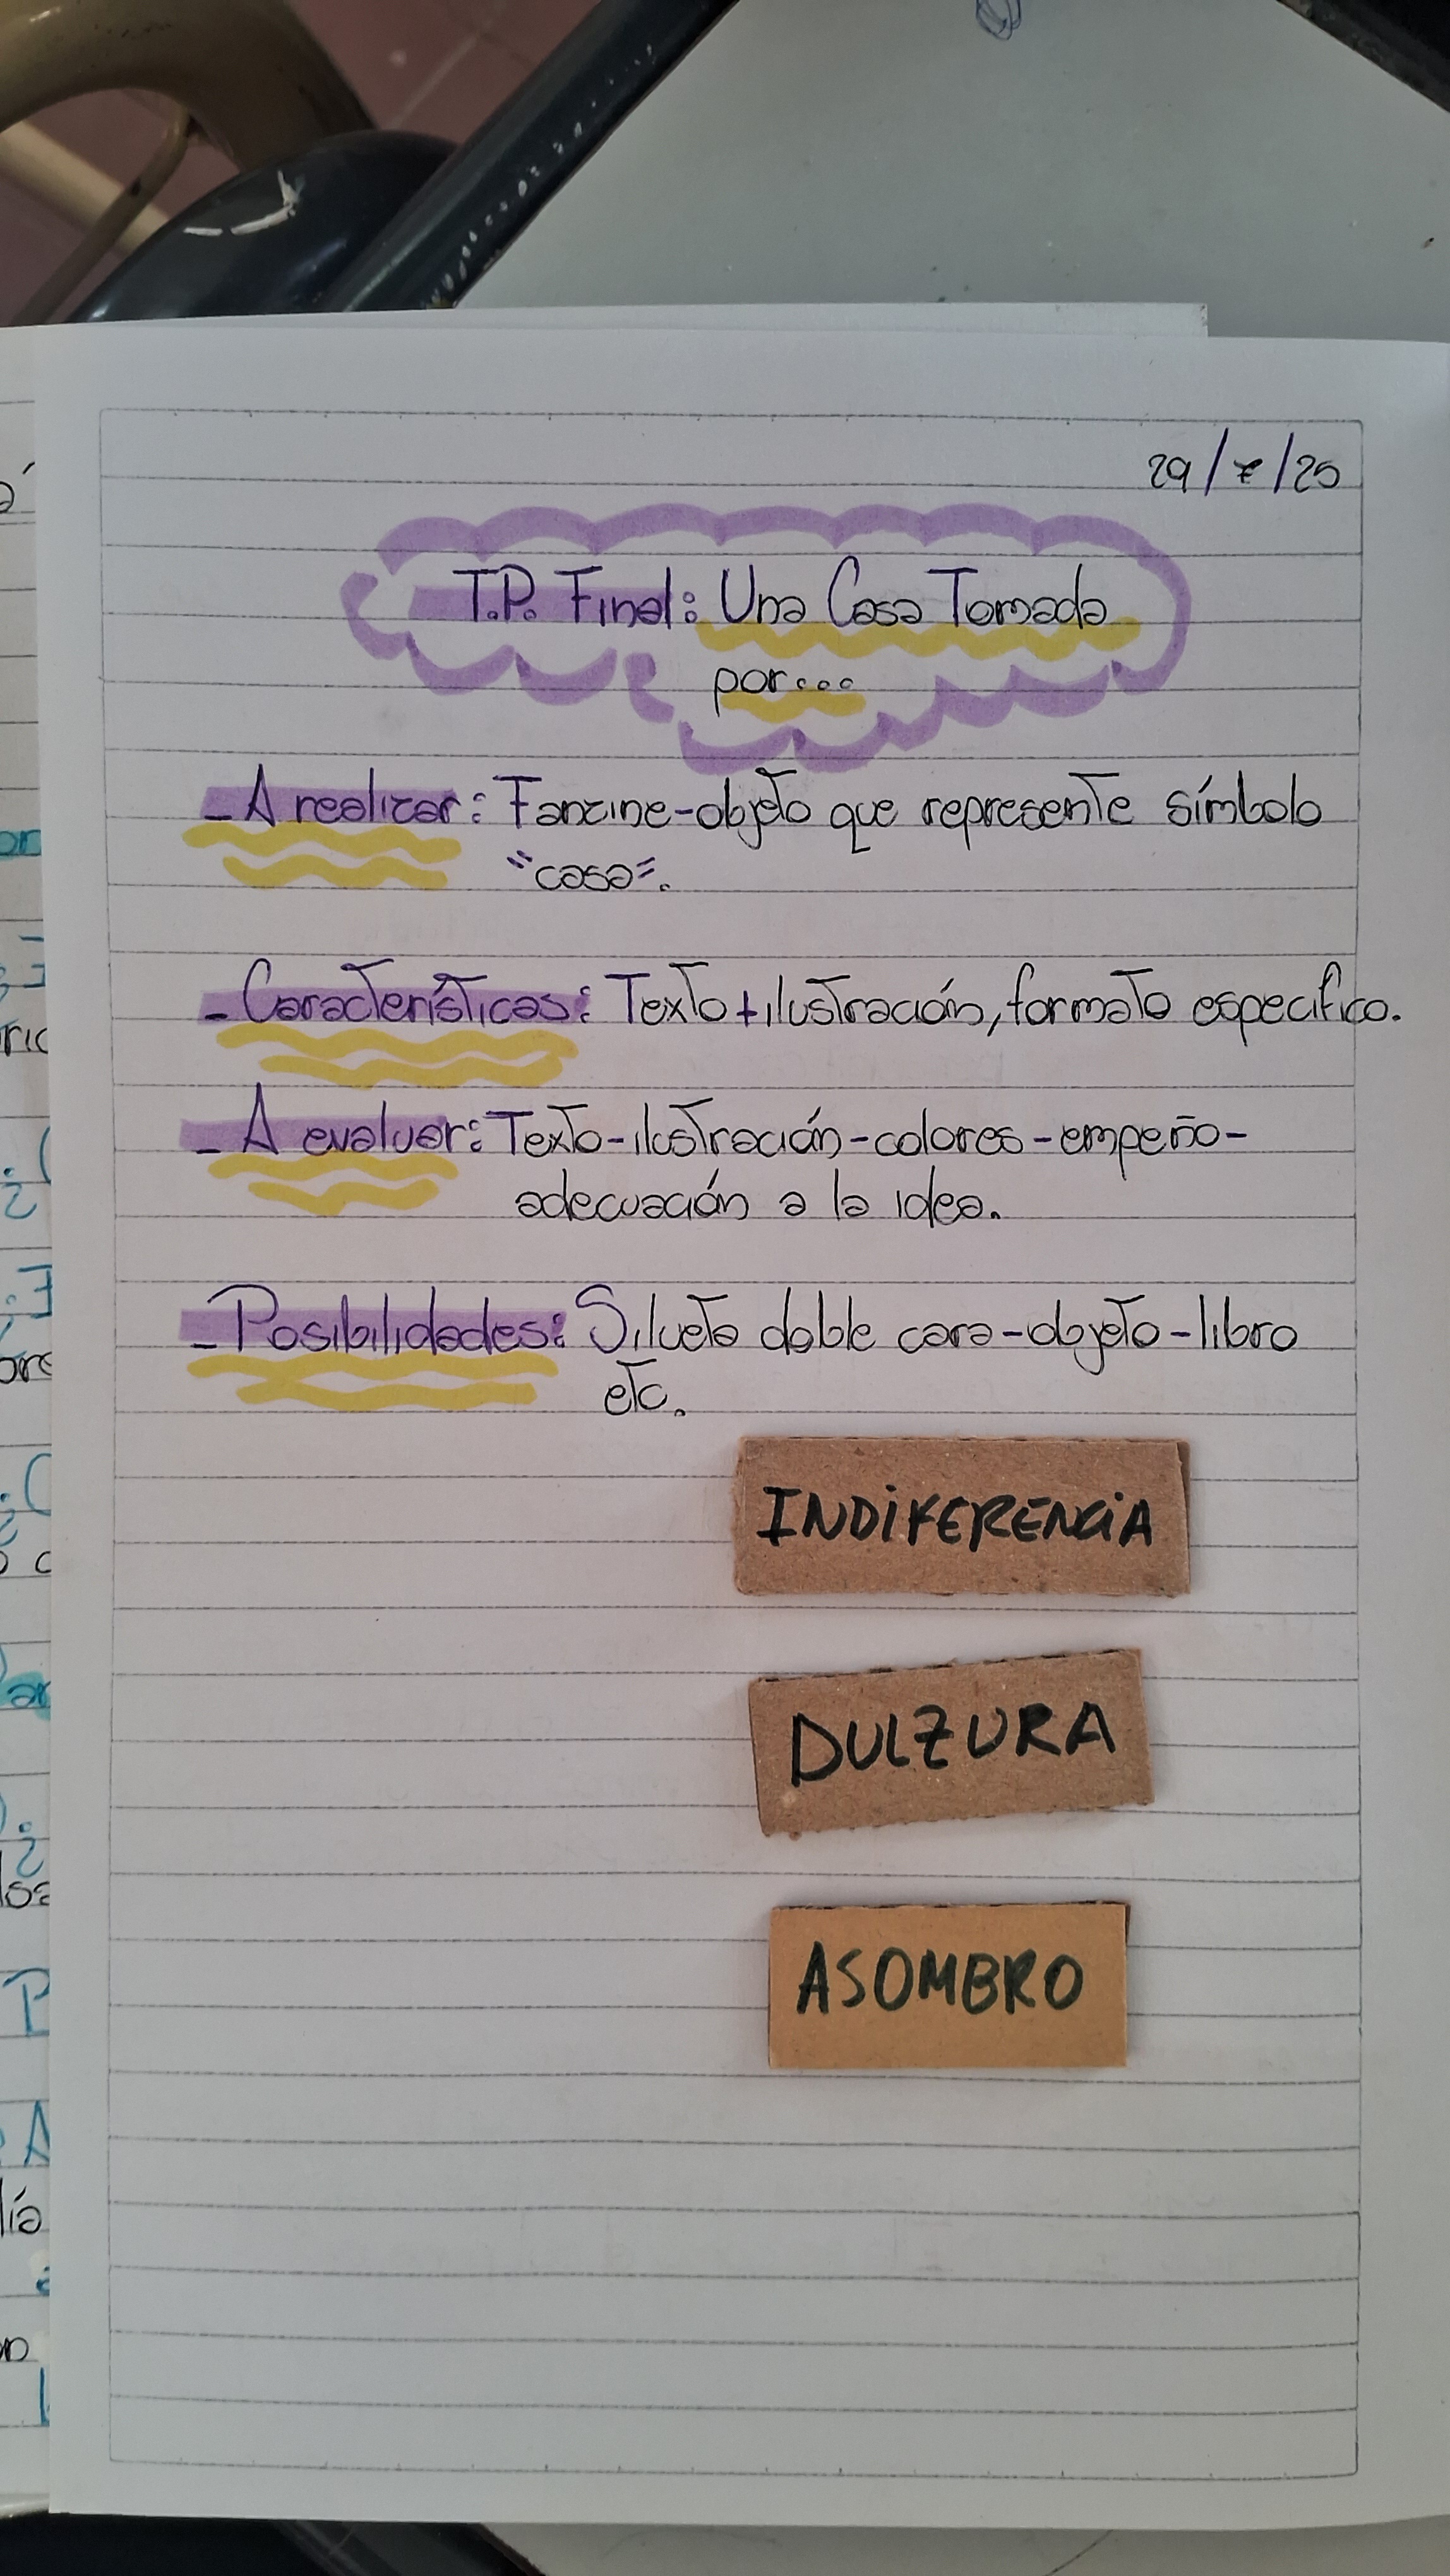 29/7/25
T.P. Final: Una Casa Tomada
por...
- A realizar: Fanzine-objeto que represente símbolo
"casa".
- Características: Texto+ilustración, formato especifico.
- A evaluar: Texto-ilustración-colores-empeño-
adecuación a la idea.
- Posibilidades: Silueta doble cara-objeto-libro
etc.
INDIFERENCIA
DULZURA
ASOMBRO